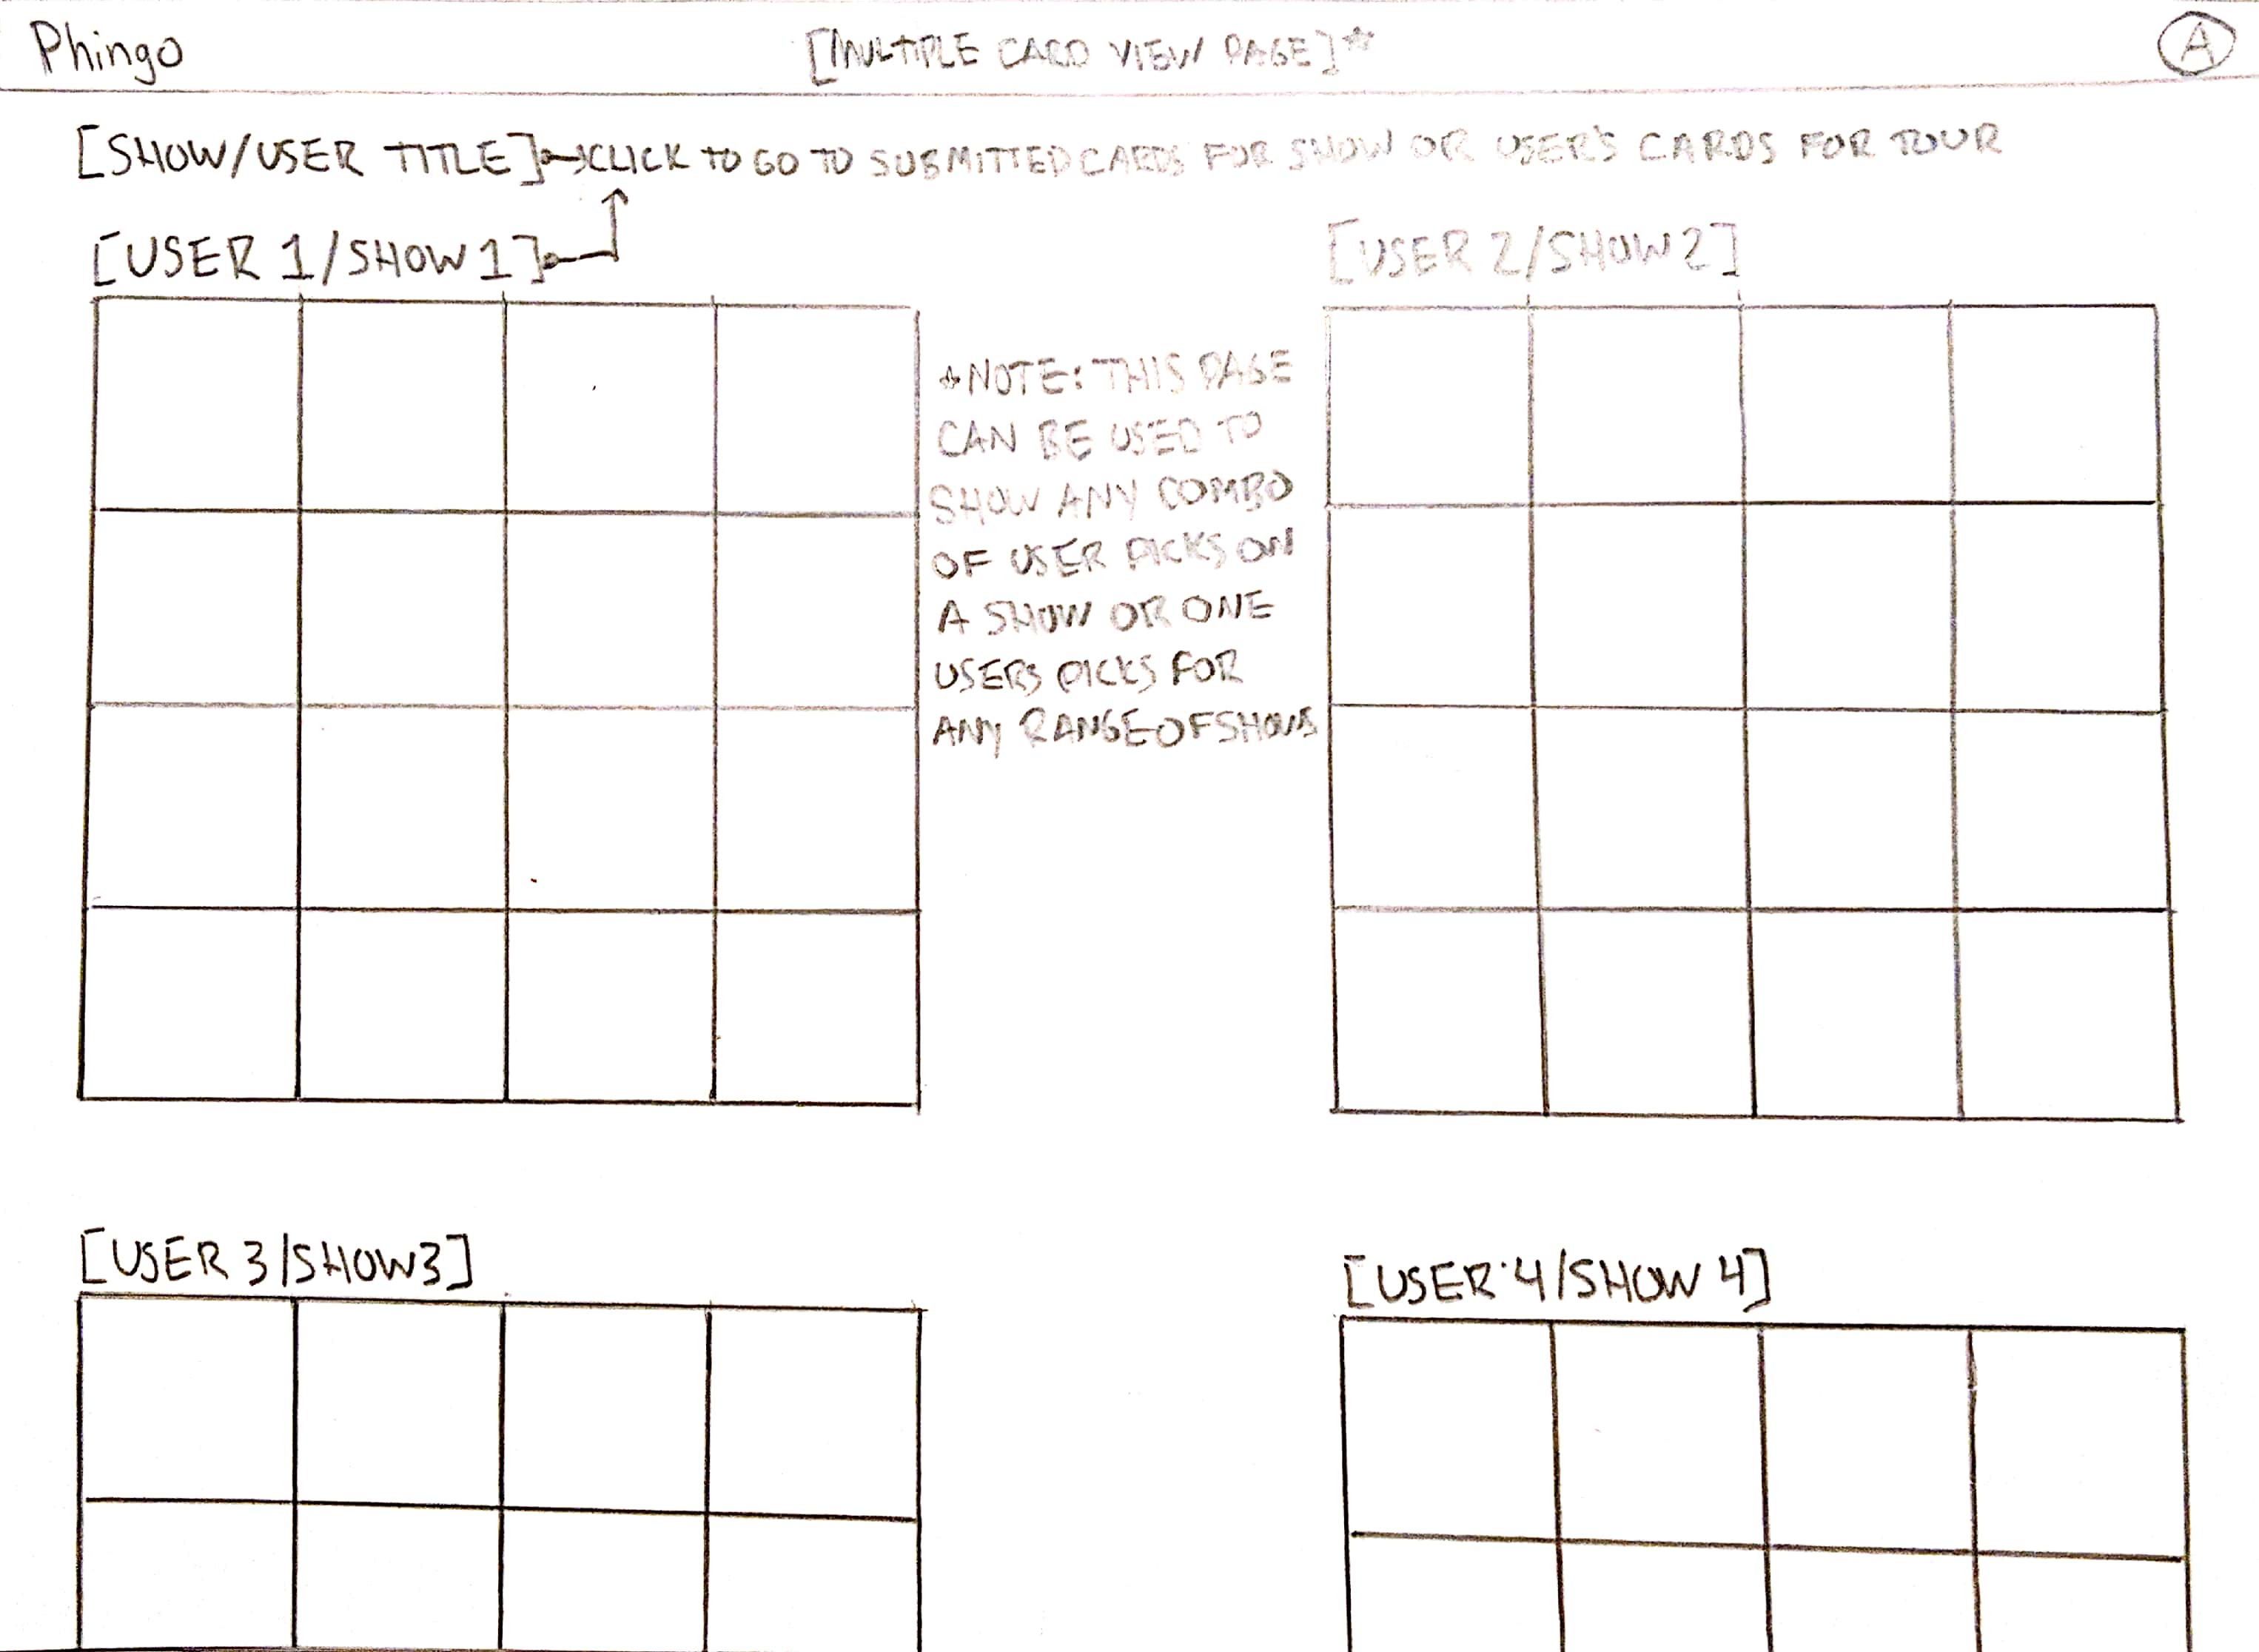 Phingo
[MULTIPLE CARD VIEW PAGE]*
A
[SHOW/USER TITLE] CLICK TO GO TO SUBMITTED CARDS FOR SHOW OR USER'S CARDS FOR TOUR
[USER 1/SHOW 1]
[USER 2/SHOW 2]
*NOTE: THIS PAGE
CAN BE USED TO
SHOW ANY COMBO
OF USER PICKS ON
A SHOW OR ONE
USERS PICKS FOR
ANY RANGE OF SHOWS
[USER 3/SHOW 3]
[USER 4/SHOW 4]